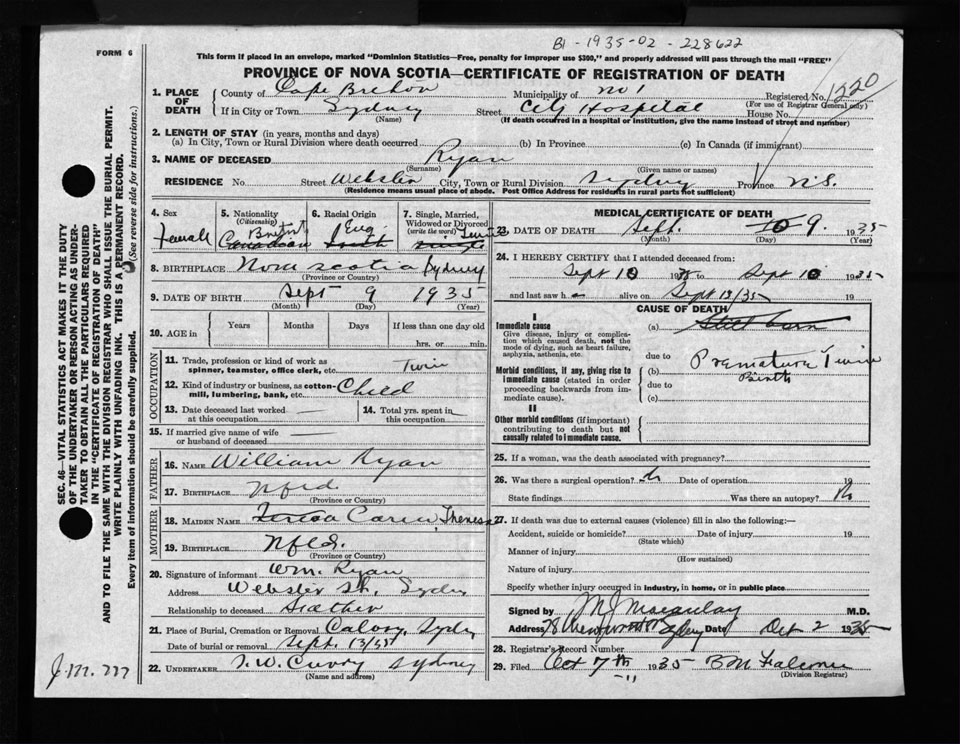 B1-1935-02-228622
FORM 6
This form if placed in an envelope, marked "Dominion Statistics—Free, penalty for improper use $300," and properly addressed will pass through the mail "FREE"
PROVINCE OF NOVA SCOTIA—CERTIFICATE OF REGISTRATION OF DEATH
1. PLACE OF DEATH
County of Cape Breton Municipality of No 1 Registered No. 1220
(For use of Registrar General only)
If in City or Town Sydney Street City Hospital House No.
(Name) (If death occurred in a hospital or institution, give the name instead of street and number)
2. LENGTH OF STAY (in years, months and days)
(a) In City, Town or Rural Division where death occurred (b) In Province (c) In Canada (if immigrant)
3. NAME OF DECEASED Ryan
(Surname) (Given name or names)
RESIDENCE No. Street Webster City, Town or Rural Division Sydney Province N.S.
(Residence means usual place of abode. Post Office Address for residents in rural parts not sufficient)
4. Sex Female
5. Nationality (Citizenship) British Canadian
6. Racial Origin Eng
7. Single, Married, Widowed or Divorced (write the word) single
8. BIRTHPLACE Nova Scotia Sydney
(Province or Country)
9. DATE OF BIRTH Sept 9 1935
(Month) (Day) (Year)
10. AGE in Years Months Days If less than one day old
hrs. or min.
OCCUPATION
11. Trade, profession or kind of work as spinner, teamster, office clerk, etc. Twin
12. Kind of industry or business, as cotton-mill, lumbering, bank, etc. Child
13. Date deceased last worked at this occupation
14. Total yrs. spent in this occupation
15. If married give name of wife or husband of deceased
FATHER
16. NAME William Ryan
17. BIRTHPLACE Nfld
(Province or Country)
MOTHER
18. MAIDEN NAME Teresa Carew, Theresa
19. BIRTHPLACE Nfld.
(Province or Country)
20. Signature of informant Wm. Ryan
Address Webster St. Sydney
Relationship to deceased Father
21. Place of Burial, Cremation or Removal Calvary, Sydney
Date of burial or removal Sept. 13/35
22. UNDERTAKER T. W. Curry Sydney
(Name and address)
MEDICAL CERTIFICATE OF DEATH
23. DATE OF DEATH Sept. 10 9 1935
(Month) (Day) (Year)
24. I HEREBY CERTIFY that I attended deceased from:
Sept 10 35 to Sept 10 1935
and last saw h alive on Sept 13/35 19
CAUSE OF DEATH
I
Immediate cause
Give disease, injury or complication which caused death, not the mode of dying, such as heart failure, asphyxia, asthenia, etc.
(a) Still born
due to
Morbid conditions, if any, giving rise to immediate cause (stated in order proceeding backwards from immediate cause).
(b) Premature Twin Birth
due to
(c)
II
Other morbid conditions (if important) contributing to death but not causally related to immediate cause.
25. If a woman, was the death associated with pregnancy?
26. Was there a surgical operation? No Date of operation 19
State findings Was there an autopsy? No
27. If death was due to external causes (violence) fill in also the following:—
Accident, suicide or homicide? Date of injury 19
(State which)
Manner of injury
(How sustained)
Nature of injury
Specify whether injury occurred in industry, in home, or in public place
Signed by M J Macaulay M.D.
Address Sydney Date Oct 2 1935
28. Registrar's Record Number
29. Filed Oct 7th 1935 B M Falconer
(Division Registrar)
SEC. 46—VITAL STATISTICS ACT MAKES IT THE DUTY
OF THE UNDERTAKER OR PERSON ACTING AS UNDER-
TAKER TO OBTAIN ALL THE PARTICULARS REQUIRED
IN THE "CERTIFICATE OF REGISTRATION OF DEATH"
AND TO FILE THE SAME WITH THE DIVISION REGISTRAR WHO SHALL ISSUE THE BURIAL PERMIT.
WRITE PLAINLY WITH UNFADING INK. THIS IS A PERMANENT RECORD.
Every item of information should be carefully supplied. (See reverse side for instructions.)
J.M.M